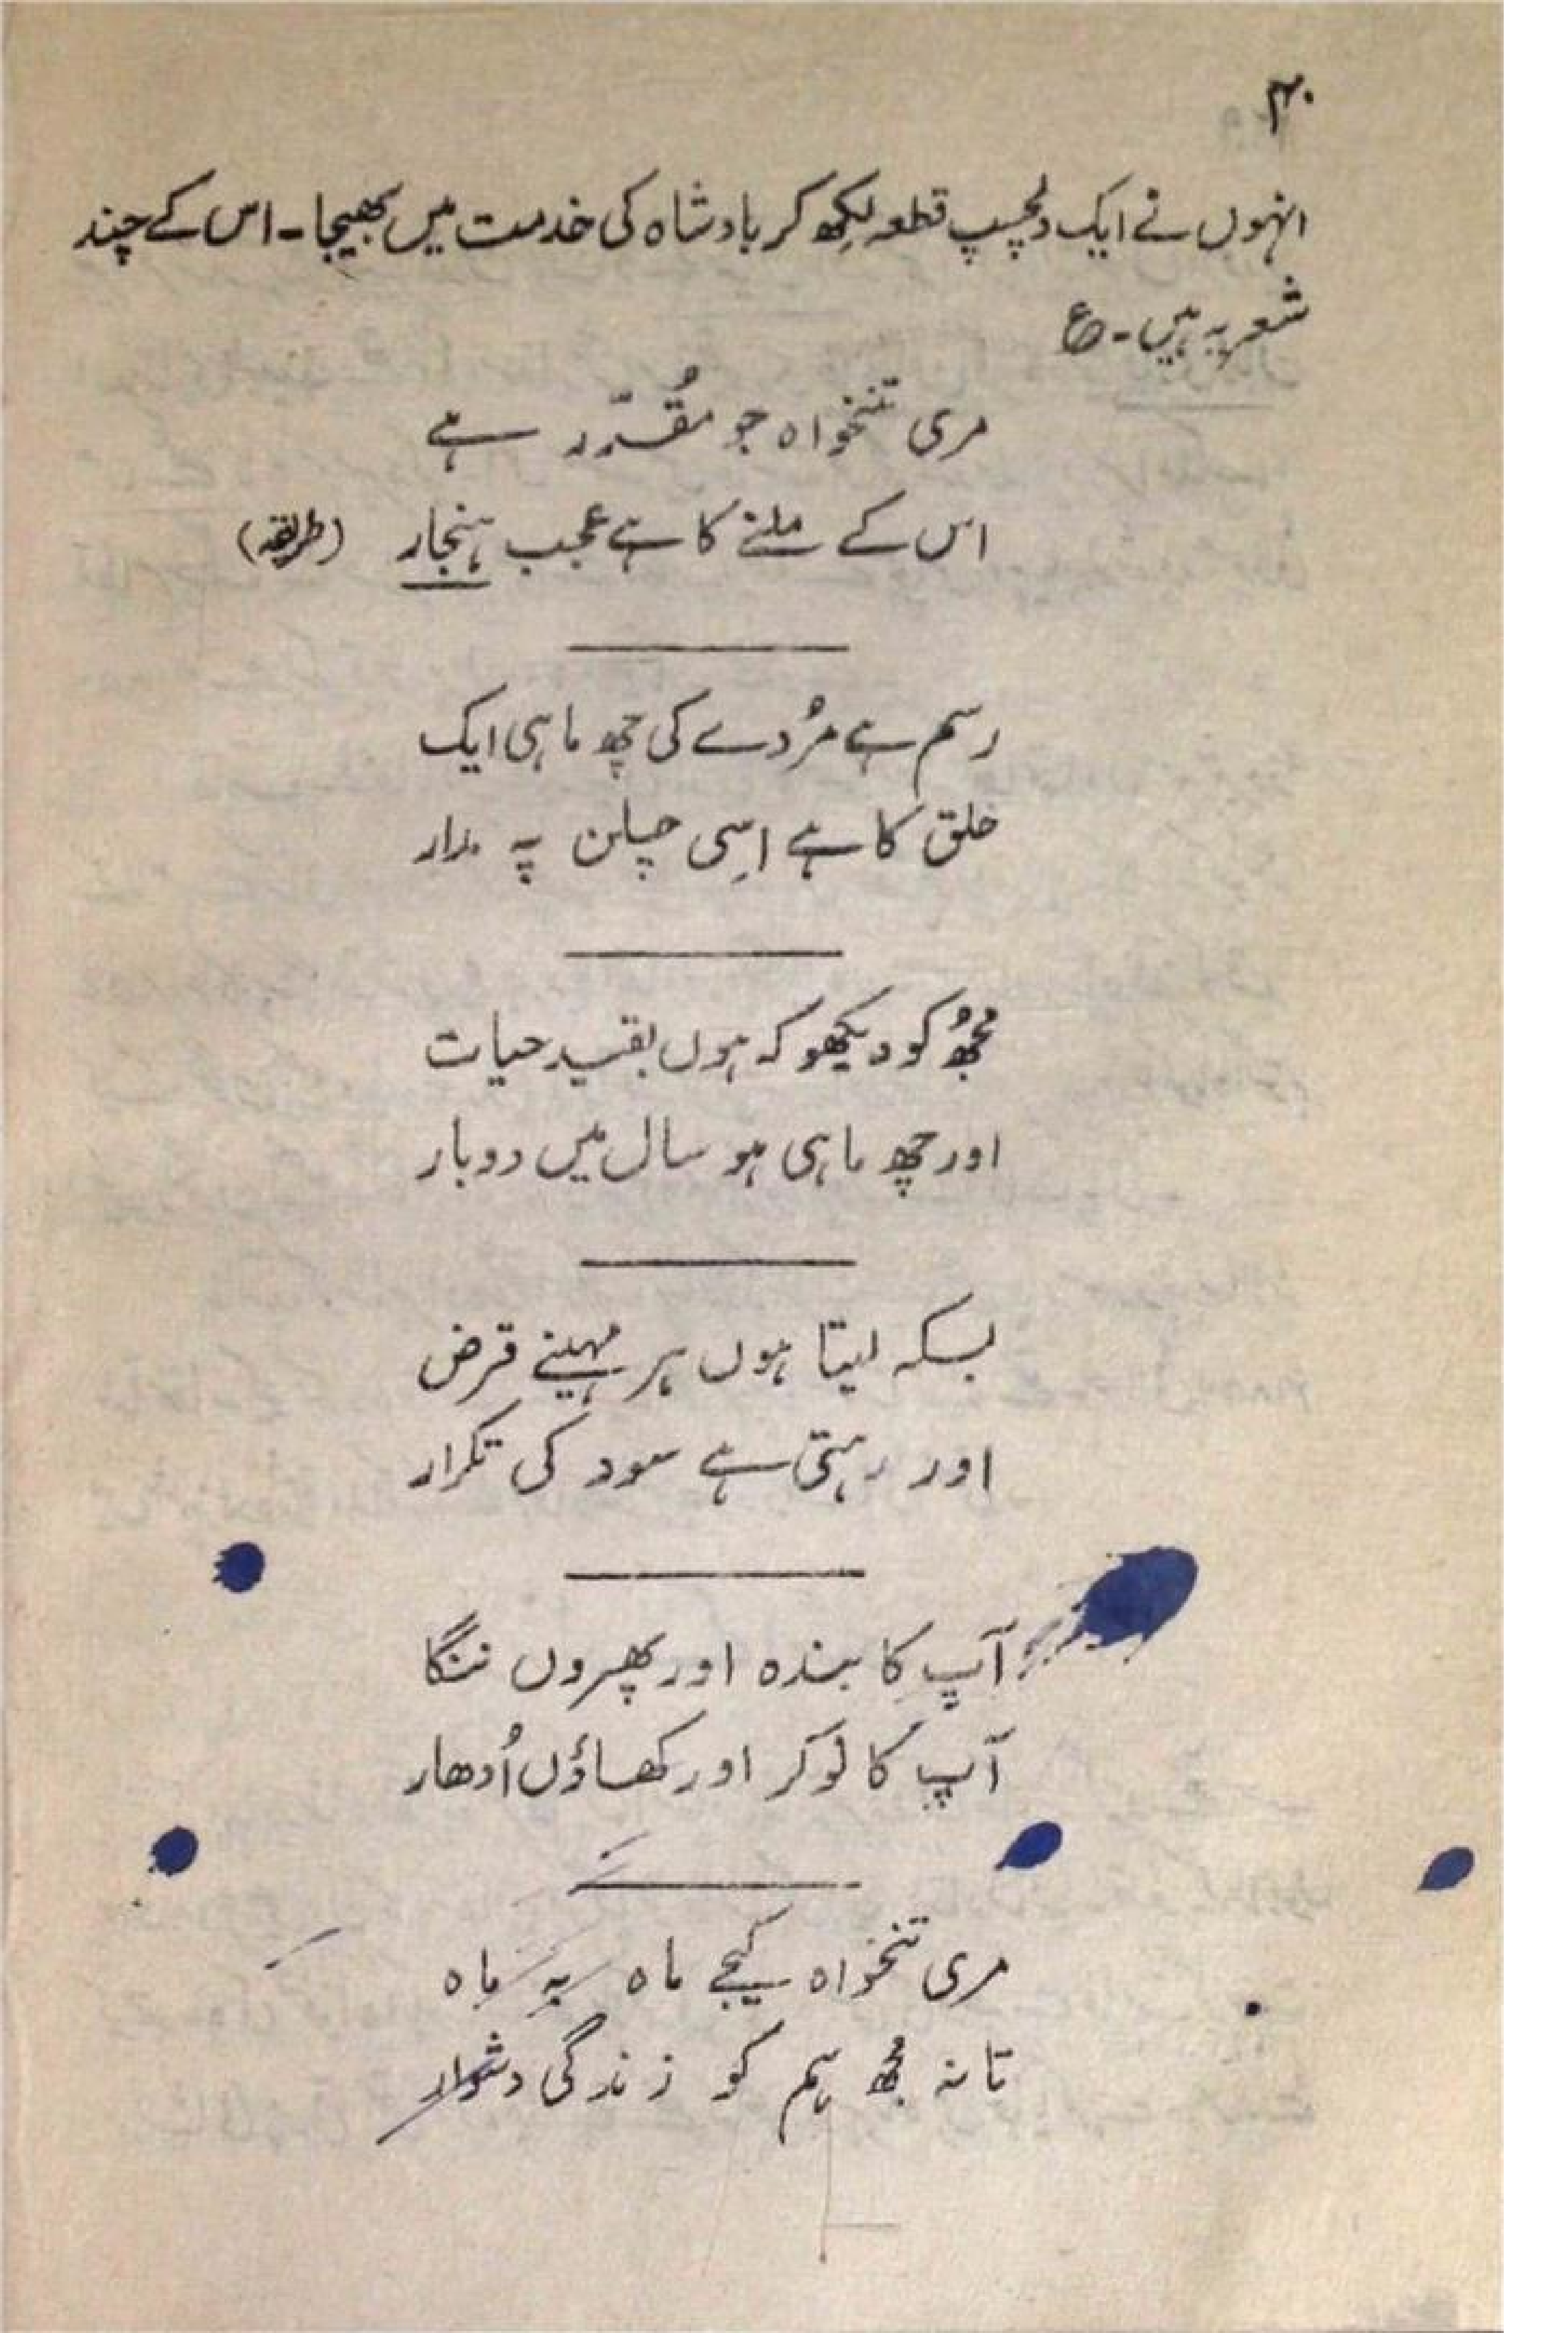 ۳۰
انہوں نے ایک دلچسپ قطعہ لکھ کر بادشاہ کی خدمت میں بھیجا۔ اس کے چند
شعر یہ ہیں۔ ع
مری تنخواہ جو مُقدّرر ہے
اس کے ملنے کا ہے عجب ہنجار (طریقہ)
رسم ہے مُردے کی چھ ماہی ایک
خلق کا ہے اسِی چلن پہ مدار
مجھُ کو دیکھو کہ ہوں بقید حیات
اور چھ ماہی ہو سال میں دوبار
بسکہ لیتا ہوں ہر مہینے قرض
اور رہتی ہے سود کی تکرار
آپ کا بندہ اور پھروں ننگا
آپ کا نوکر اور کھاؤں اُدھار
مری تنخواہ کیجے ماہ بہ ماہ
تا نہ مجھ ہم کو زندگی دشوار